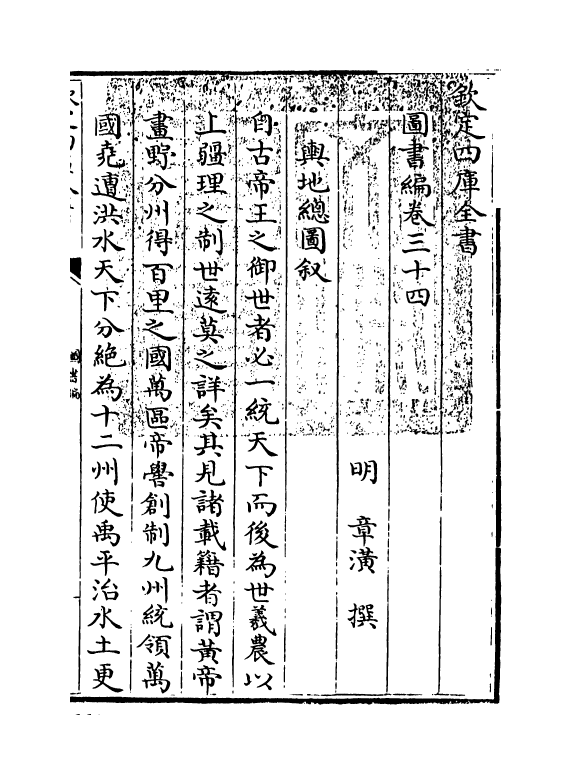 欽定四庫全書
圖書編卷三十四
明 章潢 撰
輿地總圖叙
自古帝王之御世者必一統天下而後為世羲農以
上疆理之制世遠莫之詳矣其見諸載籍者謂黃帝
畫野分州得百里之國萬區帝嚳創制九州統領萬
國堯遭洪水天下分絶為十二州使禹平治水土更